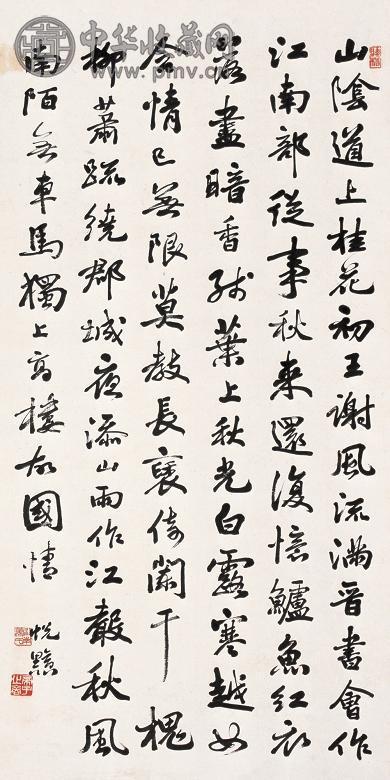 中华收藏网
www.pmv.cn
山陰道上桂花初王謝風流滿晋書曾作
江南部從事秋来還復憶鱸魚紅衣
落盡暗香殘葉上秋光白露寒越女
含情已無限莫教長褎倚闌干 槐
柳蕭疏繞郡城夜添山雨作江聲秋風
南陌無車馬獨上高樓故國情